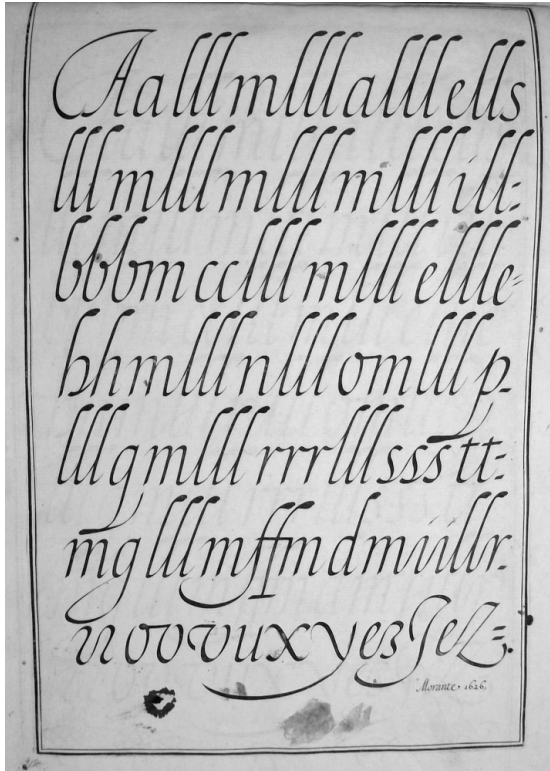 Aalllmlllalllells
lllmlllmlllmlllill:
bbbmcclllmlllellle=
hhmlllnlllomlllp-
lllqmlllrrrlllssstt:
mglllmffmdmiillr.
noovuxyez
Morante. 1626.